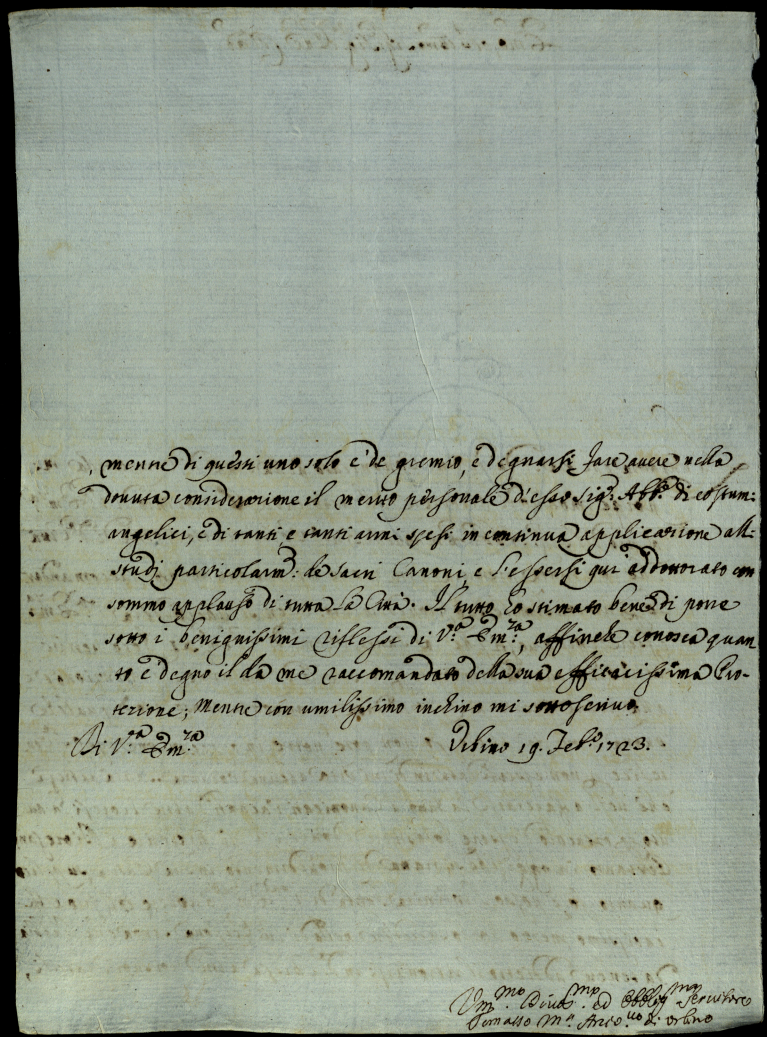 mentre di questi uno solo è de gremio, e degnarsi fare avere nella
dovuta considerazione il merito personale d'esso Sig.r Abb.e di costumi
angelici, e di tanti, e tanti anni spesi in continua applicazione alli
studj particolarm.e de sacri Canoni, e l'essersi qui addottorato con
sommo applauso di tutta la Città. Il tutto ho stimato bene di porre
sotto i benignissimi riflessi di V.ra Em.za, affinche conosca quan
to è degno il da me raccomandato della sua efficacissima Pro-
tezione; Mentre con umilissimo inchino mi sottoscrivo
Di V.ra Em.za Urbino 19. Feb.o 1723.
Um.mo Divot.mo ed Obblig.mo Servitore
Tomaso M.a Arciv.vo di Urbino